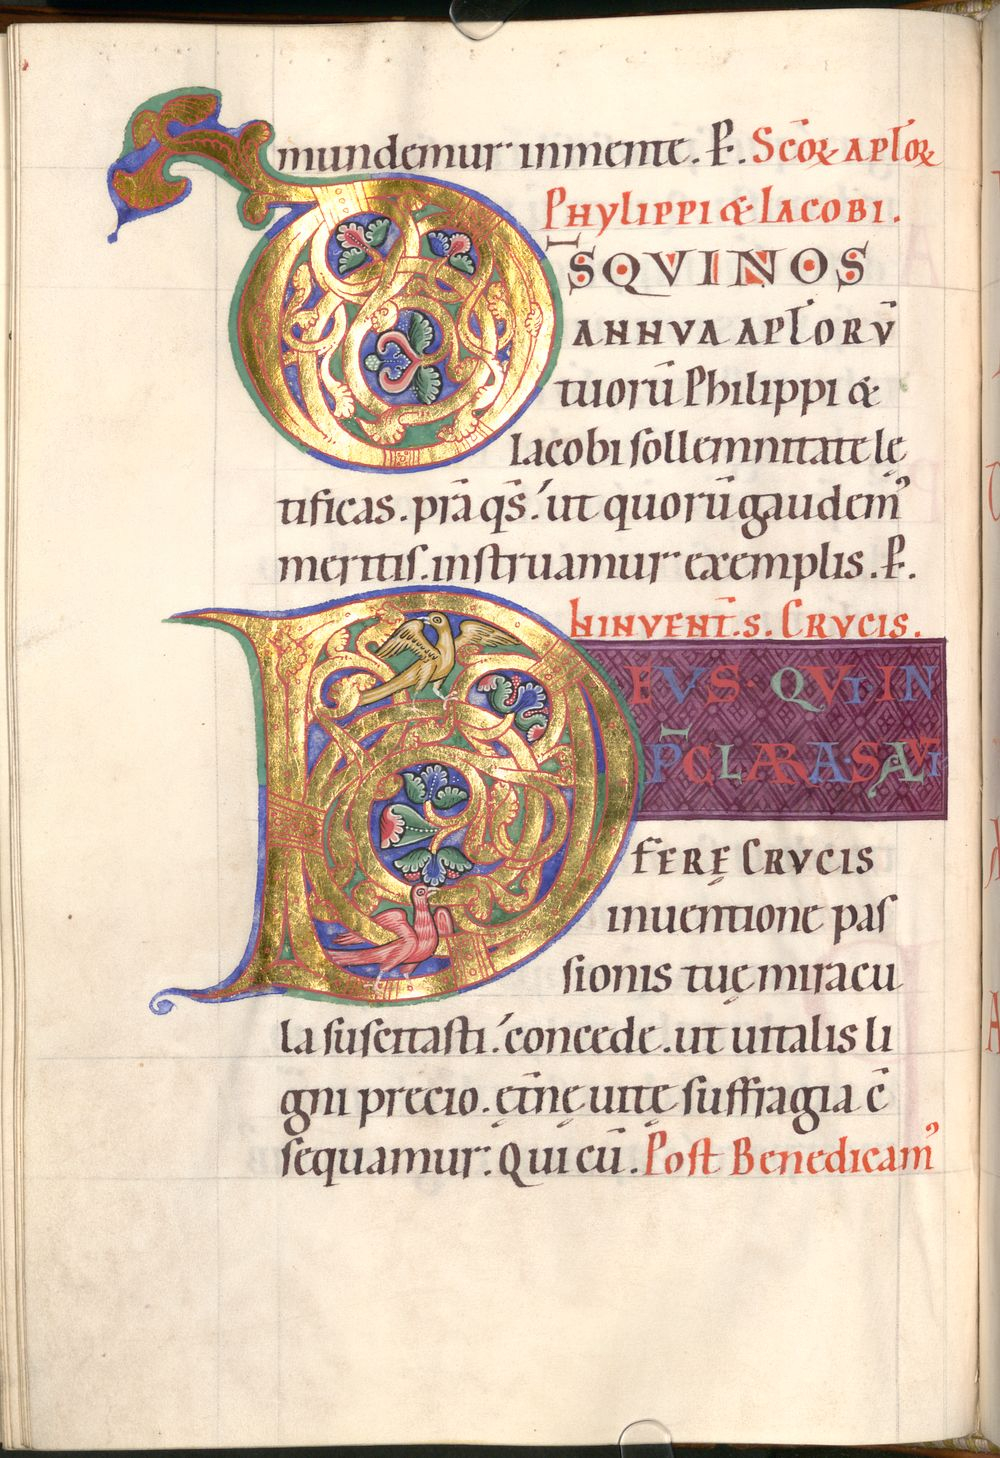 mundemur in mente. P̄. Scōꝝ apl̄oꝝ
Phylippi & Iacobi.
D̄S QVI NOS
ANNVA APL̄ORV̄
tuorū Philippi &
Iacobi sollemnitate lę
tificas. pr̄a q̄s. ut quorū gaudem᾿
meritis. instruamur exemplis. P̄.
IN INVENT̄. S. CRVCIS.
DEVS QVI IN
P̄CLARA SALVTI
FERĘ CRVCIS
inuentione pas
sionis tuę miracu
la suscitasti. concede. ut uitalis li
gni precio. ęt̄nę uitę suffragia c̄
sequamur. Qui cū. Post Benedicam᾿